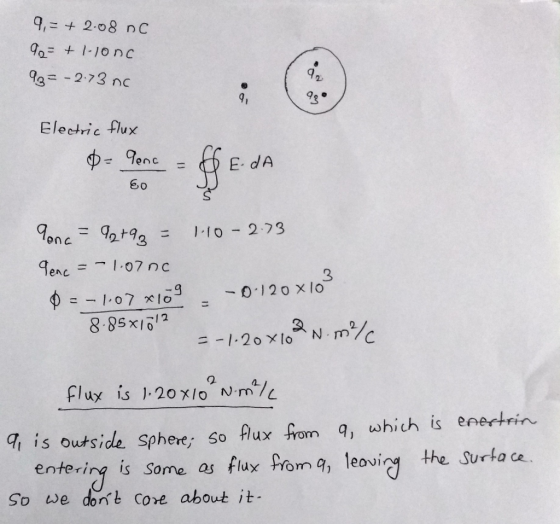 q₁ = + 2.08 nC
q₂ = + 1.10 nC
q₃ = - 2.73 nC
q₂
q₃
q₁
Electric flux
Φ = qenc/ε0 = ∯S E. dA
qenc = q₂+q₃ = 1.10 - 2.73
qenc = - 1.07 nc
Φ = -1.07 x10⁻⁹ / 8.85x10⁻¹² = -0.120 x10³
= -1.20x10² N.m²/C
flux is 1.20x10² N.m²/C
q₁ is outside sphere; so flux from q₁ which is
entering is same as flux from q₁ leaving the surface.
So we don't care about it.